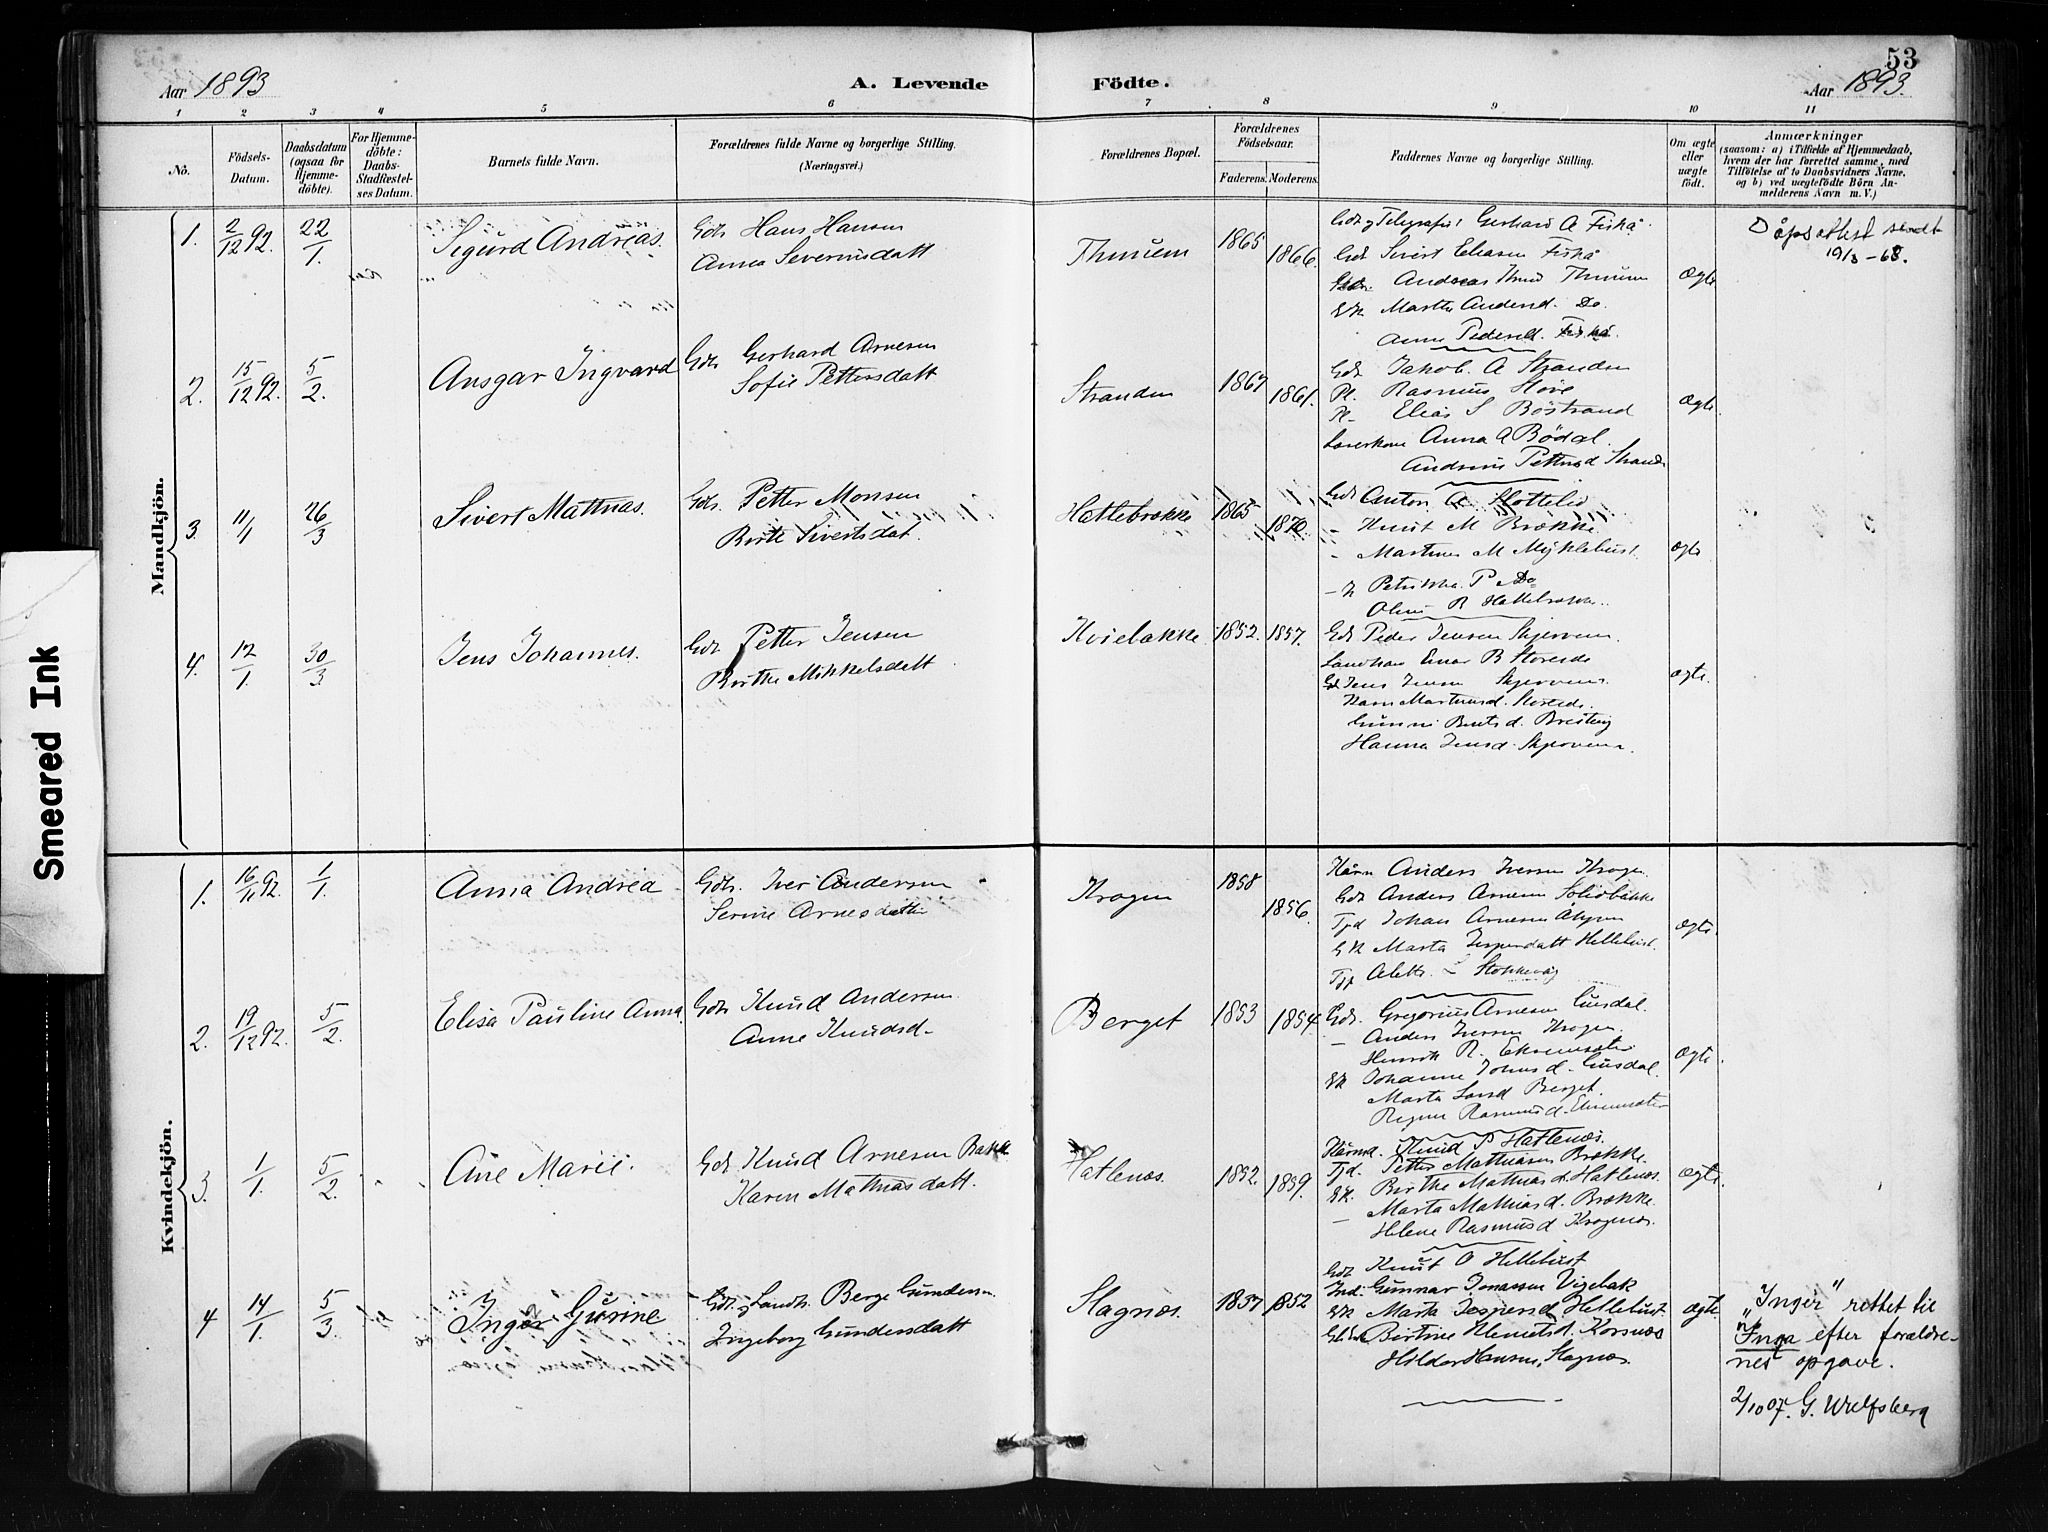 53
Aar 1893
A. Levende
Födte.
Aar 1893.
1 2 3 4 5 6 7 8 9 10 11
No.
Födsels-Datum.
Daabsdatum (ogsaa for Hjemme-döbte).
For Hjemme-döbte: Daabs-Stadfæstel-ses Datum.
Barnets fulde Navn.
Forældrenes fulde Navne og borgerlige Stilling.
(Næringsvei.)
Forældrenes Bopæl.
Forældrenes Födselsaar.
Faderens. Moderens.
Faddernes Navne og borgerlige Stilling.
Om ægte eller uægte födt.
Anmærkninger
(saasom: a) i Tilfælde af Hjemmedaab, hvem der har forrettet samme, med Tilföielse af to Daabsvidners Navne, og b) ved uægtefödte Börn Anmelderens Navn m. V.)
Mandkjön.
1. 2/12 92. 22/1. Sigurd Andreas. Gdr. Hans Hansen
Anna Severinsdatt
Thunem 1865 1866.
Gdr. Telegrafist Gerhard A Fiskå
Gdr. Sivert Eliasen Fiskå
Andreas Thunem
Gk Marthe Andersd. Do.
Anne Pedersd. Fiskå.
Ægte
Dåpsattest sendt
19/3 - 68.
2. 15/12 92. 5/2. Ansgar Ingvard Gdr. Gerhard Arnesen
Sofie Pettersdatt
Stranden 1867 1861.
Gdr. Jakob A Stranden
Pl. Rasmus
Pl. Elias S Böstrand
Anna A Bödal.
Pettersd Strand
Ægte.
3. 11/1 26/3 Sivert Mathias. Gdr. Petter Monsen
Berte Sivertsdat.
Hatlebrække 1865 1870.
Gdr Anton A
- Knut M Brække
- Martinus M Myklebust.
- K P Do
Oline R Hatlebrække.
ægte
4. 12/1. 30/3. Jens Johannes. Gdr. Petter Jensen
Birthe Mikkelsdatt
Kviebakke 1852. 1857.
Gdr Peder Jensen
Jens Jensen
Martinusd.
Hanna Jensd.
ægte.
Kvindekjön.
1. 16/11 92. 1/1. Anna Andrea Gdr. Iver Andersen
Serine Arnesdatter
Krogen 1858 1856.
Kårm Anders Iversen Krogen
Gdr Anders Arnesen
Johan Arnesen
Gk Marta Jespersdatt Hellebust.
L Stokkevåg
Ægte.
2. 19/12 92. 5/2. Elisa Pauline Anna. Gdr Knud Andersen
Anne Knudsd-
Berget 1853 1854
Gdr. Gregorius Arnesen Gusdal.
- Anders Iversen Krogen
Henrik R. Ekremsæter
Gk Johanne Johnsd. Gusdal.
Marta Larsd Berget
Rasmusd. Ekremsæter
Ægte.
3. 1/1. 5/2. Ane Marie. Gdr Knud Arnesen Bakk
Karen Mathiasdatt.
Hatlenæs. 1852. 1859.
Kårmd. Knud P Hatlenæs.
Tjd. Petter Mathiasen Brække.
Gk. Birthe Mathiasd. Hatlenæs.
- Marta Mathiasd. Brække
Helene Rasmusd Krogenæs.
ægte.
4 14/1. 5/3. Inger Gurine Gdr. & Landh. Berge Gundersen
Ingeborg Gundersdatt
Slagnæs. 1857 1852
Gdr Knut O Hellebust
Ind. Gunnar Jonassen Vigebak
Gk Marta Jespersd. Hellebust
Bertine Klemetsd. Korsnæs
Hilda Hansen, Slagnæs.
ægte
"Inger" rettet til
"Inga" efter forældre-
nes opgave.
2/10 07. G. Wulfsberg
Smeared Ink